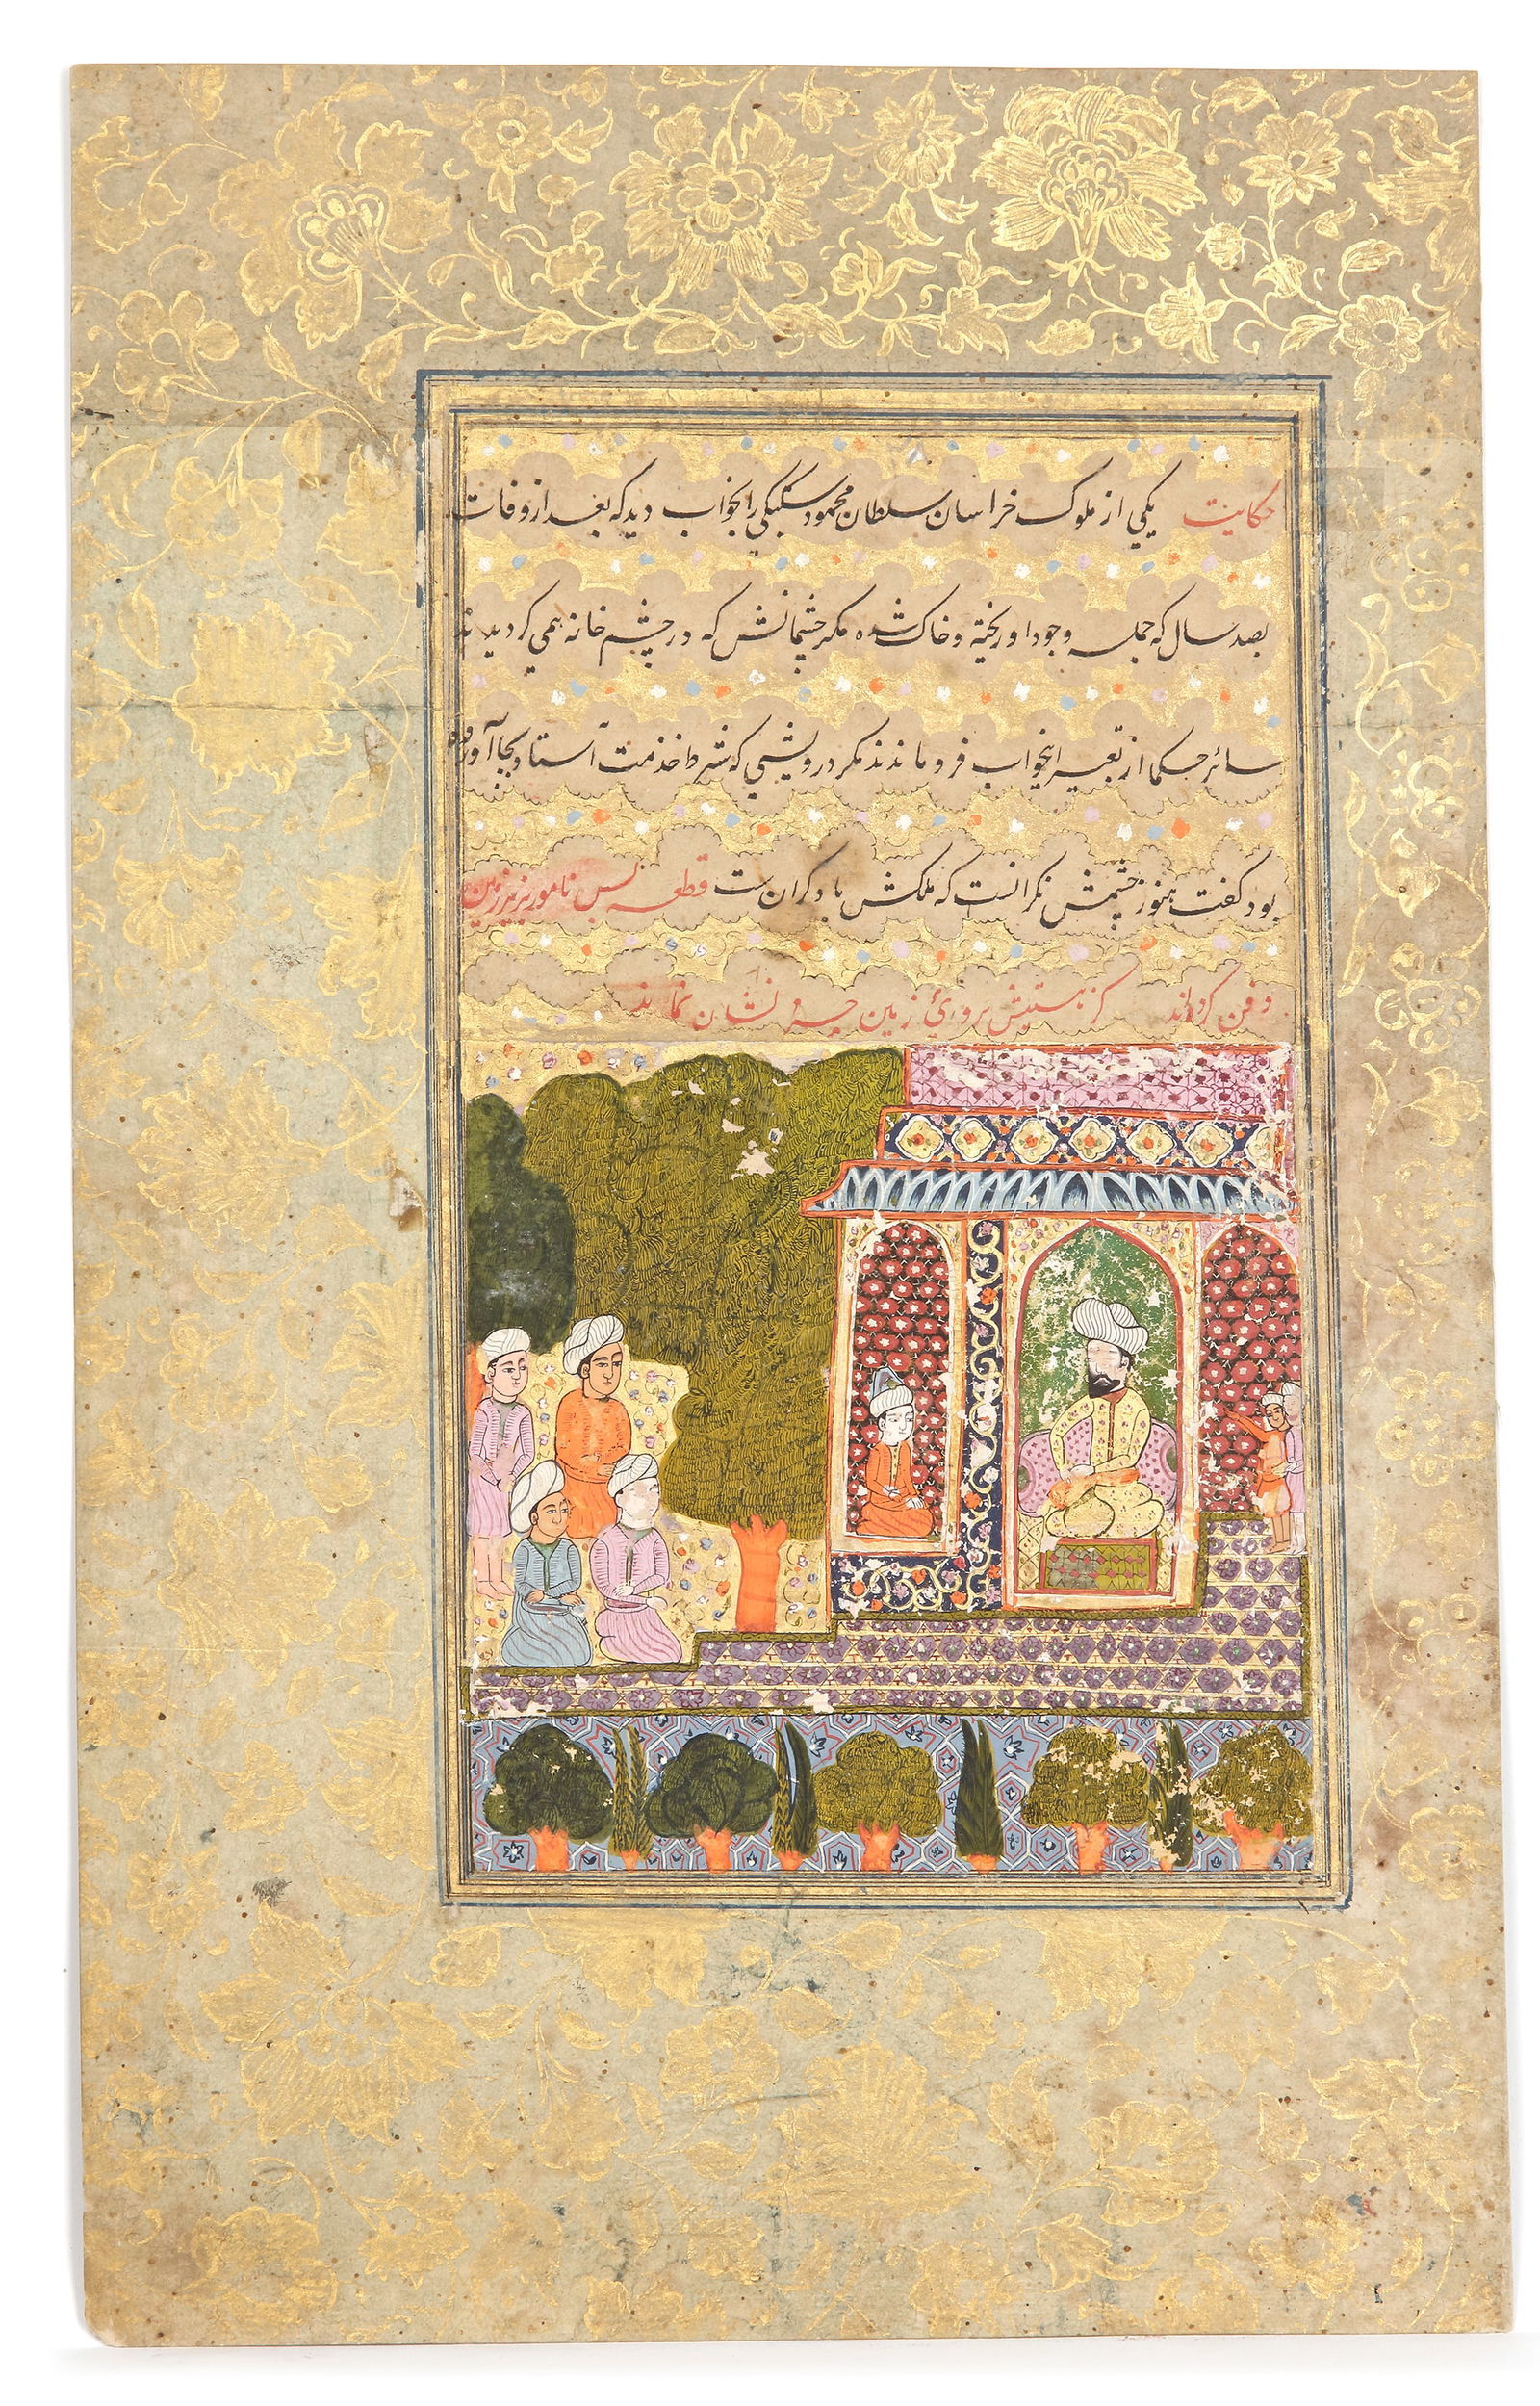 حکایت یکی از ملوک خراسان سلطان محمود سبکتکین را بخواب دید که بعد از وفات
بصد سال که جمله وجود او ریخته و خاک شده مکر چشمانش که در چشم خانه همی کردیدند
سائر حکما از تعبیر اینخواب فرو ماندند مکر درویشی که شرط خذمت استاد بجا آورده
بود گفت هنوز چشمش نکرانست که ملکش با دکرانست قطعه بس نامور بزیر زمین
دفن کرده‌اند کز هستیش بروئ زمین نشان نماند